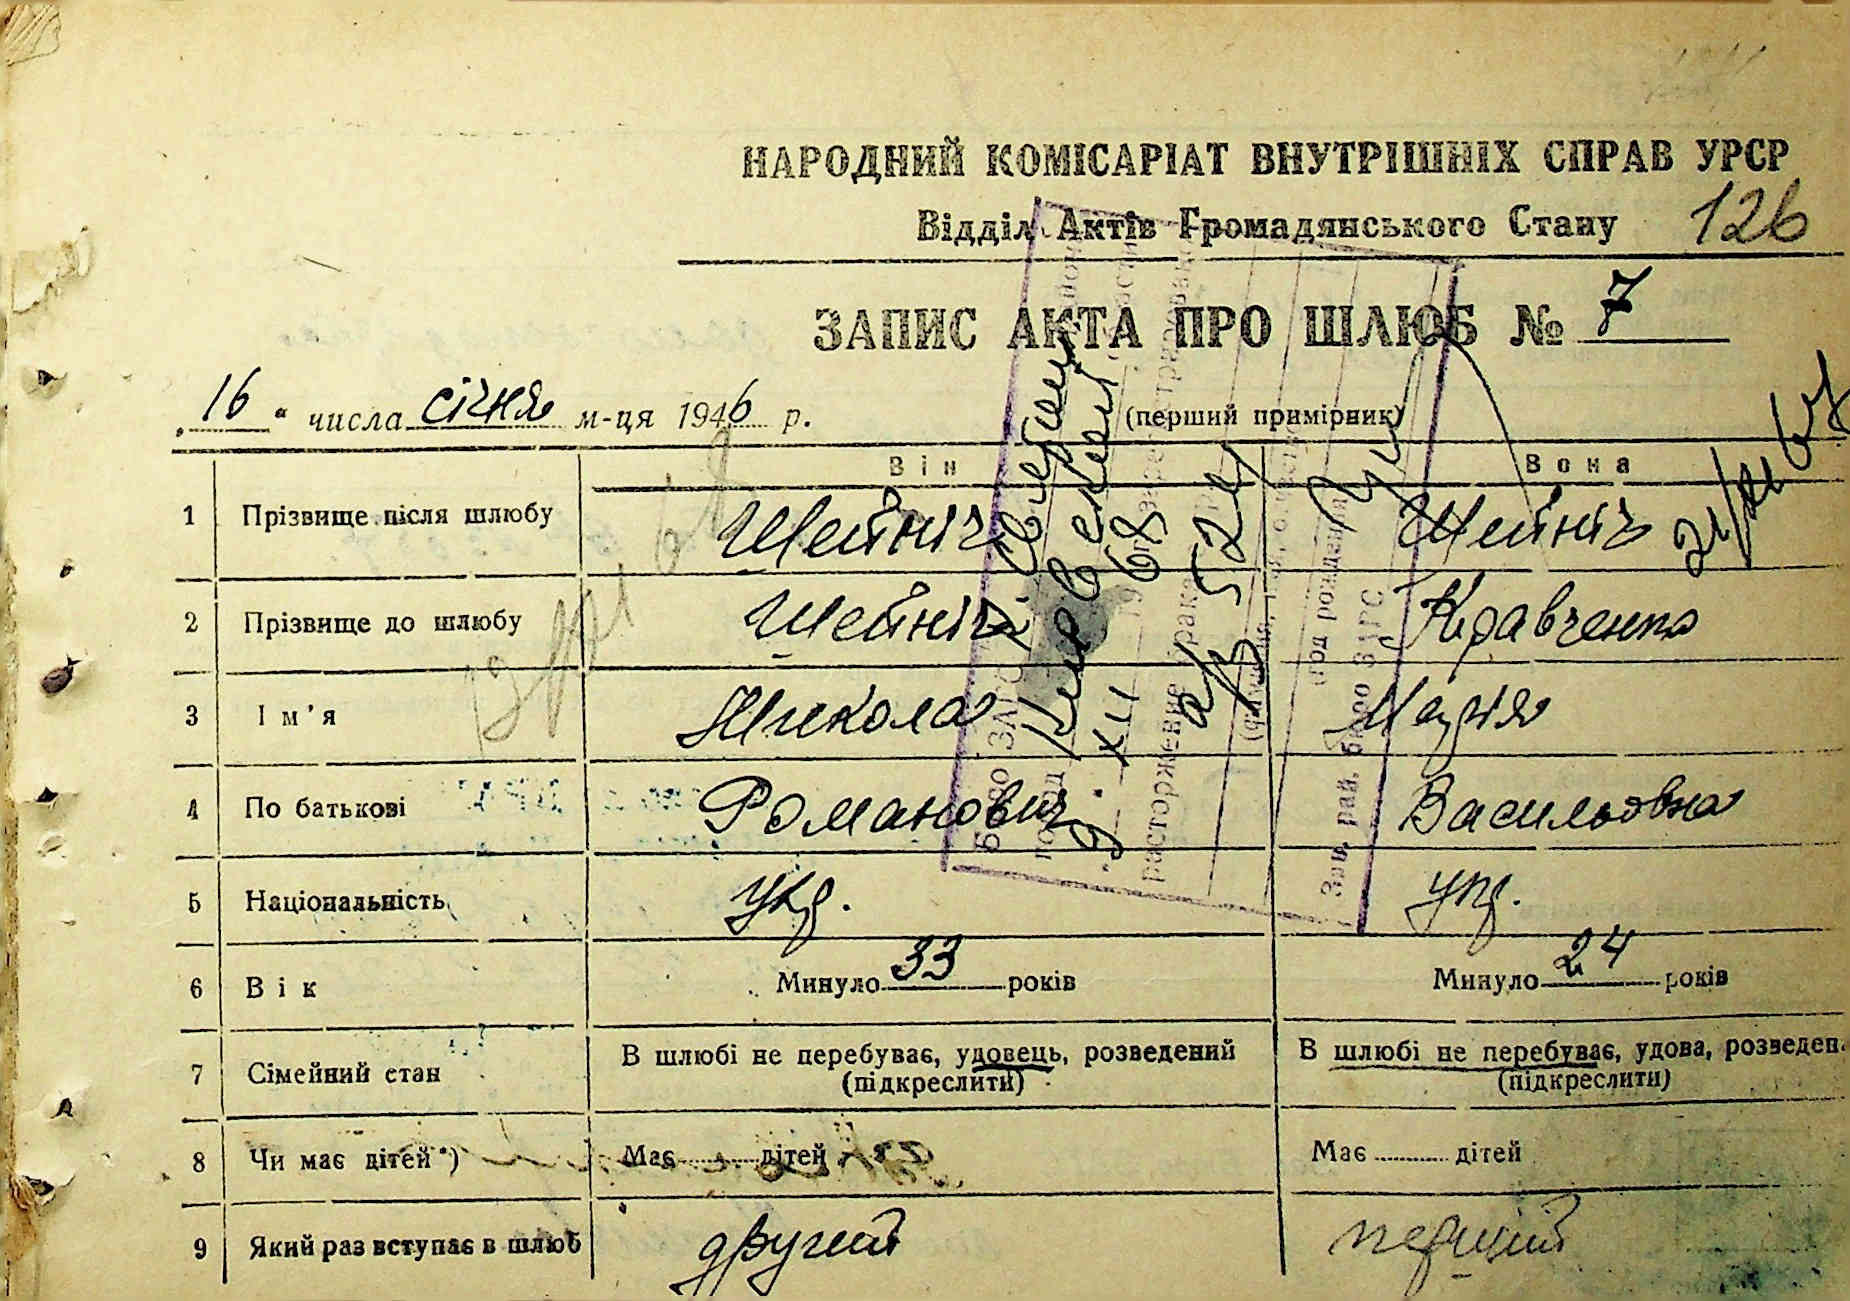 НАРОДНИЙ КОМІСАРІАТ ВНУТРІШНІХ СПРАВ УРСР
Відділ Актів Громадянського Стану 126
ЗАПИС АКТА ПРО ШЛЮБ № 7
„16“ числа січня м-ця 1946 р. (перший примірник)
Він Вона
1 Прізвище після шлюбу Шейніч Шейніч
2 Прізвище до шлюбу Шейніч Кравченко
3 Ім'я Микола Марія
4 По батькові Романович Васильовна
5 Національність укр. укр.
6 Вік Минуло 33 років Минуло 24 років
7 Сімейний стан В шлюбі не перебуває, удовець, розведений В шлюбі не перебуває, удова, розведен.
(підкреслити) (підкреслити)
8 Чи має дітей*) Має дітей Має дітей
9 Який раз вступає в шлюб другий перший
Бюро ЗАГС
9. XII 1968
расторжение брака
а/з 52
Зав. рай. бюро ЗАГС